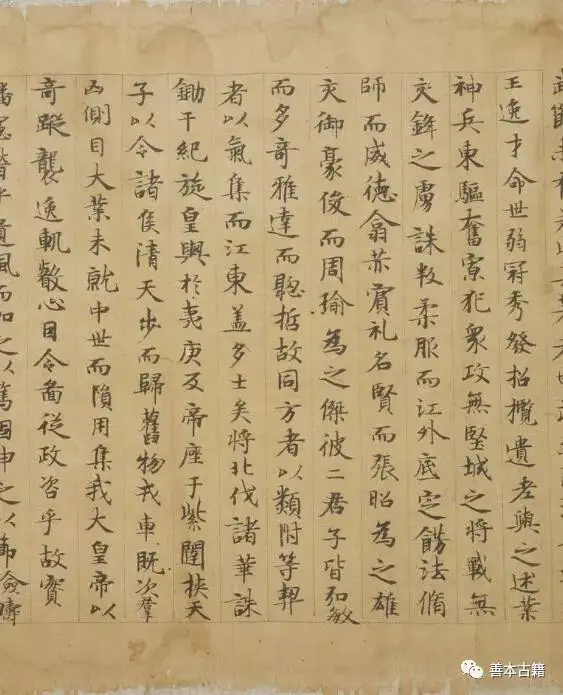 王逸才命世弱冠秀發招攬遺老與之述業
神兵東驅奮寡犯衆攻無堅城之將戰無
交鋒之虜誅叛柔服而江外底定餝法脩
師而威德翕赤賓礼名賢而張昭為之雄
交御豪俊而周瑜為之傑彼二君子皆弘敏
而多奇雅達而聦哲故同方者以類附等契
者以氣集而江東盖多士矣將北伐諸華誅
鋤干紀旋皇輿於夷庚反帝座于紫闥挾天
子以令諸侯清天步而歸舊物戎車既次羣
凶側目大業未就中世而隕用集我大皇帝以
奇蹤襲逸軌叡心因令圖從政咨乎故實
乎遺風而加之以篤固申之以節儉
善本古籍